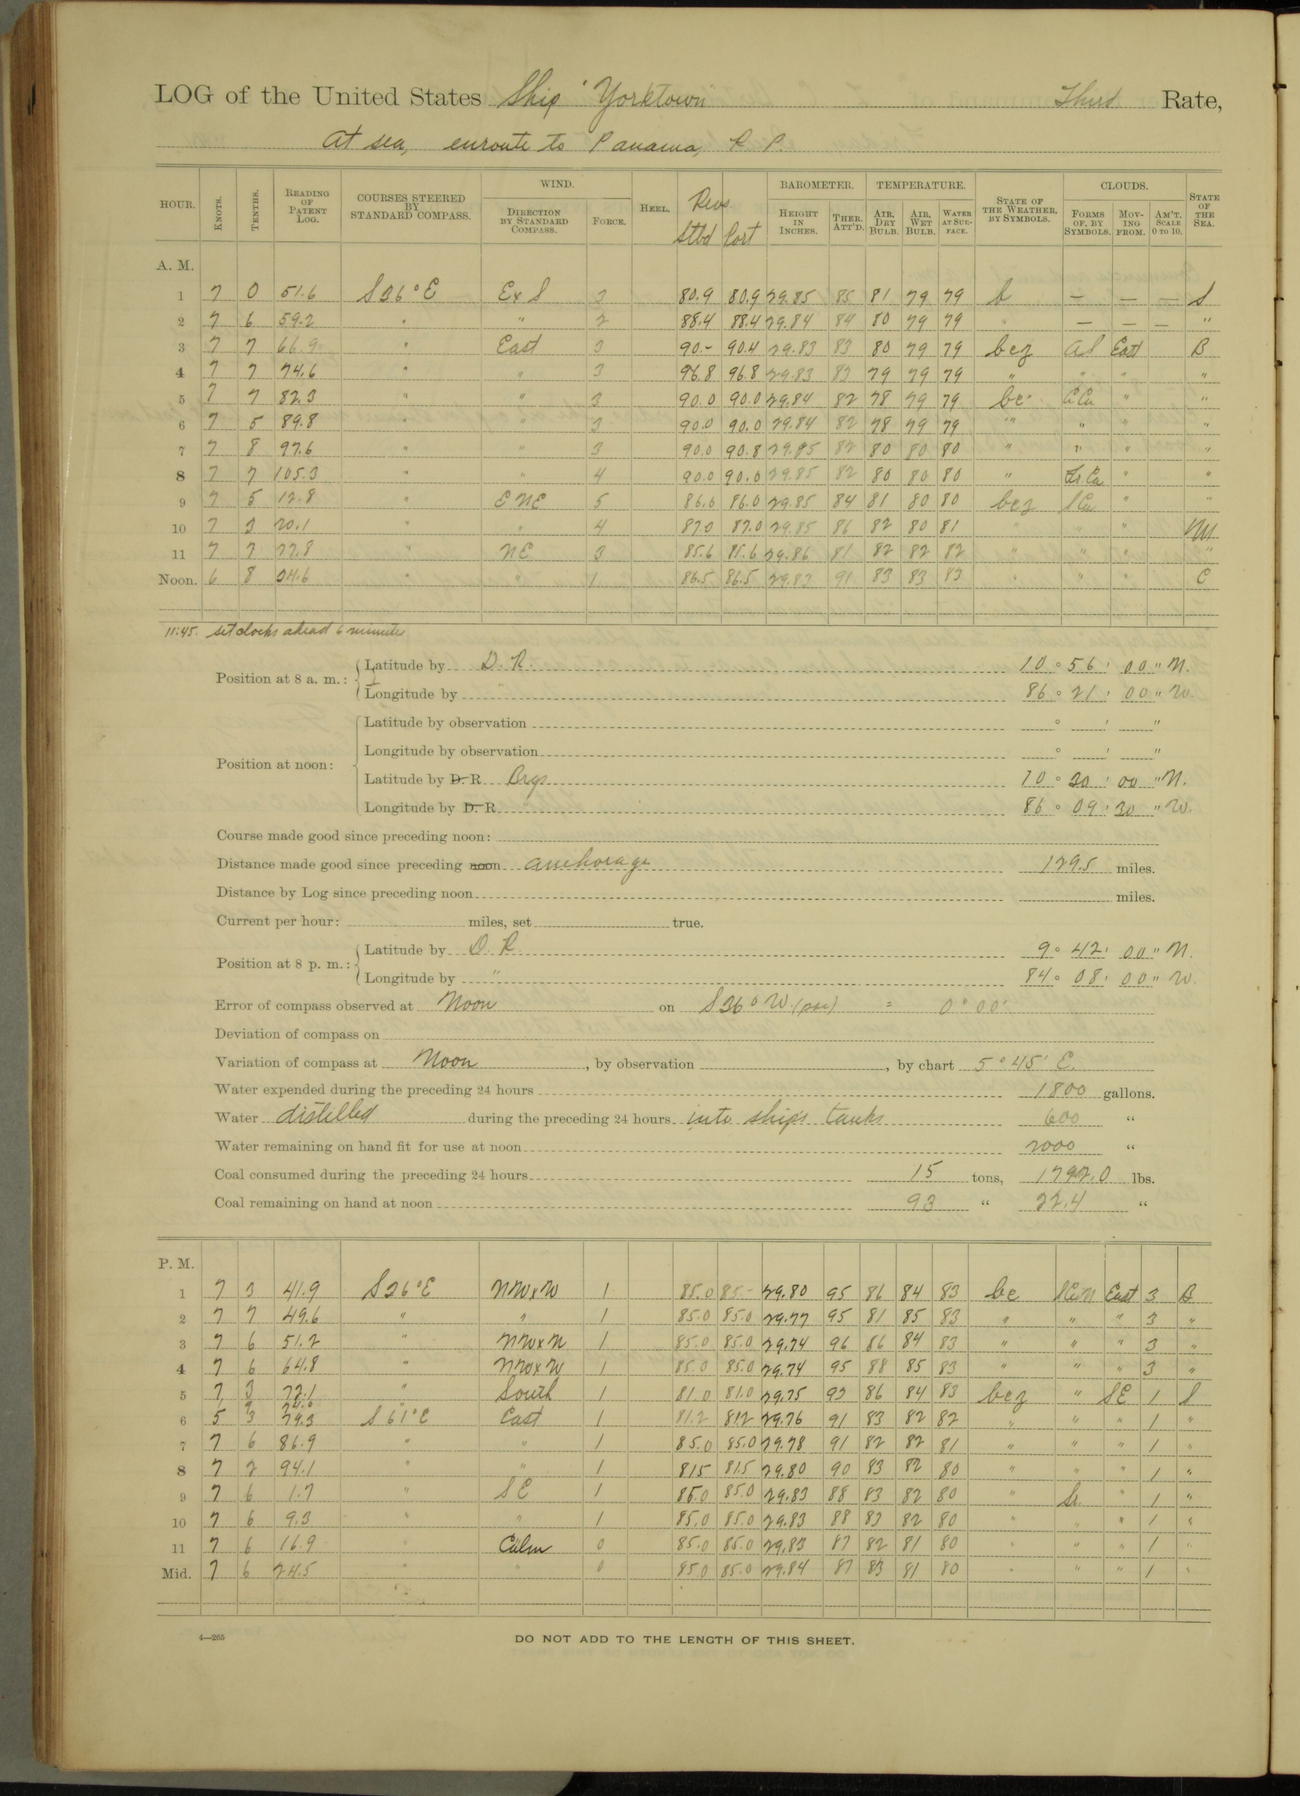 LOG of the United States Ship "Yorktown" Third Rate,
At sea, enroute to Panama, R P.
HOUR. KNOTS. TENTHS. READING OF PATENT LOG. COURSES STEERED BY STANDARD COMPASS. WIND. DIRECTION BY STANDARD COMPASS. FORCE. HEEL. Revs Stbd Port BAROMETER. HEIGHT IN INCHES. THER. ATT'D. TEMPERATURE. AIR, DRY BULB. AIR, WET BULB. WATER AT SURFACE. STATE OF THE WEATHER, BY SYMBOLS. CLOUDS. FORMS OF, BY SYMBOLS. MOVING FROM. AM'T. SCALE 0 TO 10. STATE OF THE SEA.
A. M.
1 7 0 51.6 S 36° E E x S 80.9 80.9 29.85 85 81 79 79 b — — — S
2 7 6 59.2 " " 2 88.4 88.4 29.84 84 80 79 79 — — — "
3 7 7 66.9 " East 3 90.- 90.4 29.83 83 80 79 79 bcz East B
4 7 7 74.6 " " 3 96.8 96.8 29.83 83 79 79 79 " " " "
5 7 7 82.3 " " 3 90.0 90.0 29.84 82 78 79 79 bc " "
6 7 5 89.8 " " 3 90.0 90.0 29.84 82 78 79 79 " " " "
7 7 8 97.6 " " 3 90.0 90.8 29.85 82 80 80 80 " " " "
8 7 7 105.3 " " 4 90.0 90.0 29.85 82 80 80 80 " Fr Cu " "
9 7 5 12.8 " E NE 5 86.0 86.0 29.85 84 81 80 80 bcz " "
10 7 3 20.1 " " 4 87.0 87.0 29.85 86 82 80 81 " " " M
11 7 7 27.8 " NE 3 85.6 85.6 29.86 81 82 82 82 " " " "
Noon. 6 8 34.6 " " 1 86.5 86.5 29.83 91 83 83 83 " " " C
11:45. set clocks ahead 6 minutes
Position at 8 a. m.: Latitude by D. R. 10 ° 56 ' 00 " N.
Longitude by " 86 ° 21 ' 00 " W.
Position at noon: Latitude by observation ° ' "
Longitude by observation ° ' "
Latitude by D. R Brgs 10 ° 30 ' 00 " N.
Longitude by D. R " 86 ° 09 ' 30 " W.
Course made good since preceding noon:
Distance made good since preceding noon anchorage 129.5 miles.
Distance by Log since preceding noon miles.
Current per hour: miles, set true.
Position at 8 p. m.: Latitude by D. R. 9 ° 42 ' 00 " N.
Longitude by " 84 ° 08 ' 00 " W.
Error of compass observed at Noon on S 36° W (psc) = 0° 00'
Deviation of compass on
Variation of compass at Noon, by observation , by chart 5° 45' E.
Water expended during the preceding 24 hours 1800 gallons.
Water distilled during the preceding 24 hours into ships tanks 600 "
Water remaining on hand fit for use at noon 2000 "
Coal consumed during the preceding 24 hours 15 tons, 1792.0 lbs.
Coal remaining on hand at noon 93 " 22.4 "
P. M.
1 7 3 41.9 S 36° E NW x W 1 85.0 85.- 29.80 95 86 84 83 bc East 3 B
2 7 7 49.6 " " 1 85.0 85.0 29.77 95 81 85 83 " " " 3 "
3 7 6 51.2 " NW x N 1 85.0 85.0 29.74 96 86 84 83 " " " 3 "
4 7 6 64.8 " NW x W 1 85.0 85.0 29.74 95 88 85 83 " " " 3 "
5 7 3 72.1 " South 1 81.0 81.0 29.75 93 86 84 83 bcz " SE 1 S
6 5 3 79.3 S 61° E East 1 81.2 81.2 29.76 91 83 82 82 " " " 1 "
7 7 6 86.9 " " 1 85.0 85.0 29.78 91 82 82 81 " " " 1 "
8 7 2 94.1 " " 1 81.5 81.5 29.80 90 83 82 80 " " " 1 "
9 7 6 1.7 " SE 1 85.0 85.0 29.83 88 83 82 80 " " 1 "
10 7 6 9.3 " " 1 85.0 85.0 29.83 88 83 82 80 " " 1 "
11 7 6 16.9 " Calm 0 85.0 85.0 29.83 87 82 81 80 " " " 1 "
Mid. 7 6 24.5 " 0 85.0 85.0 29.84 87 83 81 80 " " " 1 "
4—265 DO NOT ADD TO THE LENGTH OF THIS SHEET.